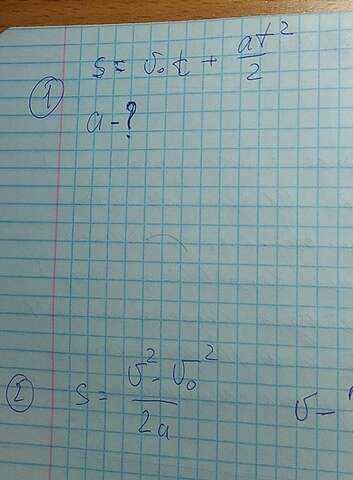 ① s = v₀t + at²/2
a - ?
② s = v² - v₀² / 2a v -